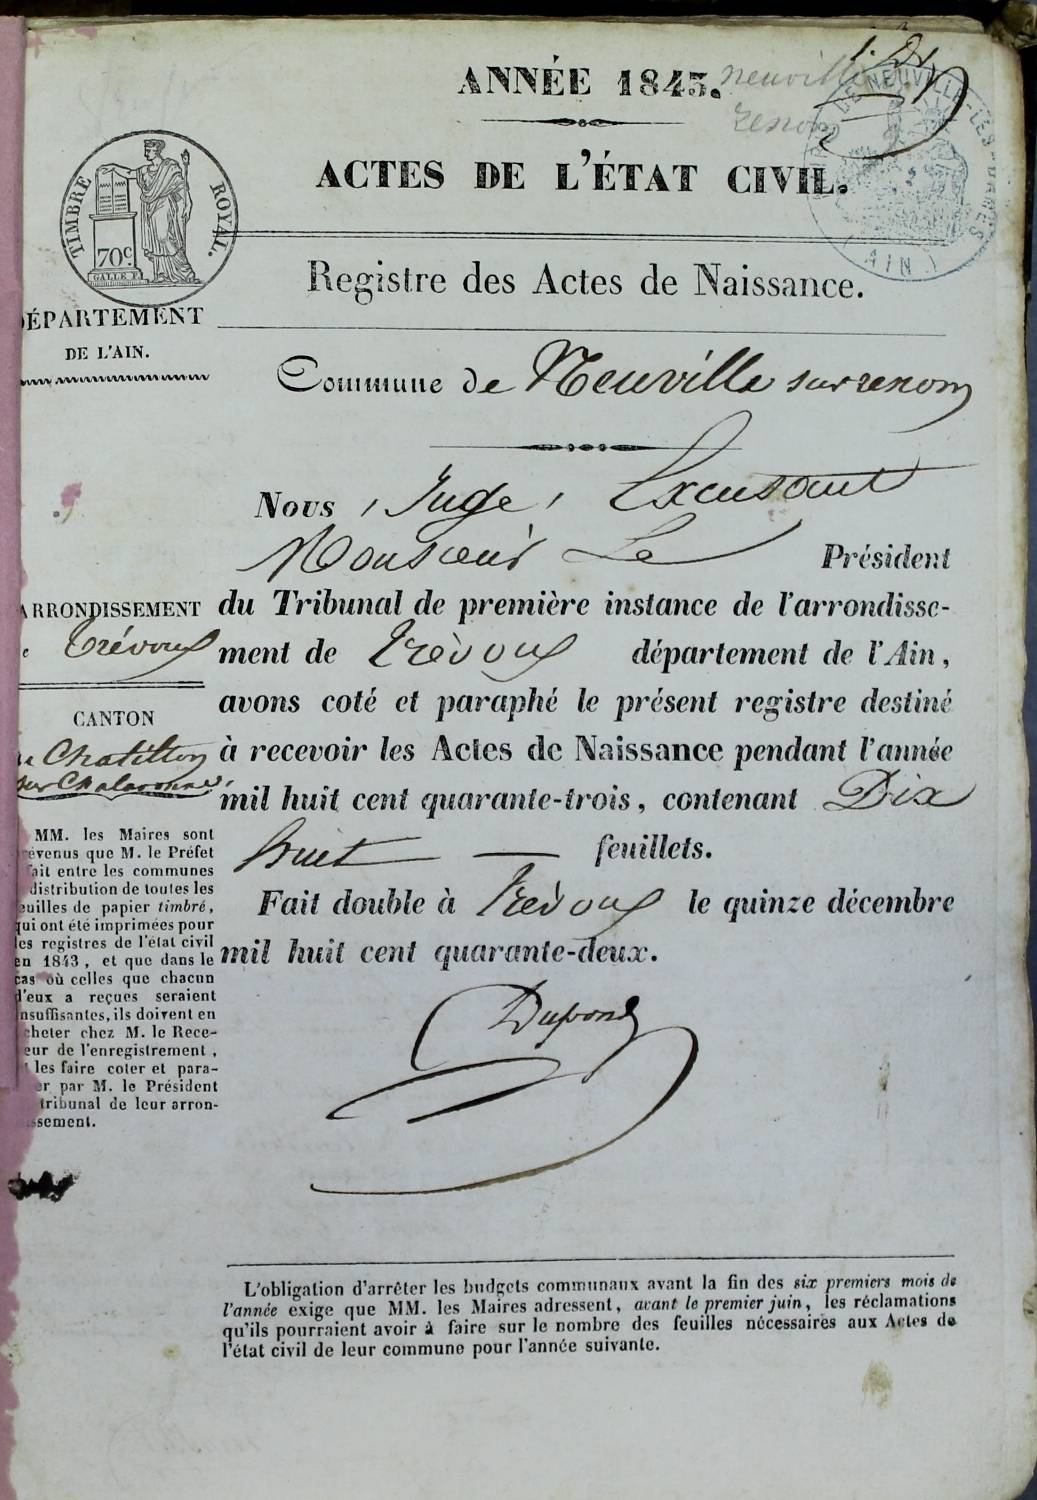 ANNÉE 1843.
neuville
renom
ACTES DE L'ÉTAT CIVIL.
DE NEUVILLE-LES-DAMES
(AIN)
TIMBRE ROYAL.
70c.
Registre des Actes de Naissance.
DÉPARTEMENT
DE L'AIN.
Commune de Neuville sur renom
Nous, Juge, Excusant
Monsieur Le Président
du Tribunal de première instance de l'arrondisse-
ment de Trévoux département de l'Ain,
avons coté et paraphé le présent registre destiné
à recevoir les Actes de Naissance pendant l'année
mil huit cent quarante-trois, contenant Dix
huit — feuillets.
Fait double à Trévoux le quinze décembre
mil huit cent quarante-deux.
Dupond
ARRONDISSEMENT
e Trévoux
CANTON
de Chatillon
sur Chalaronne
MM. les Maires sont
révenus que M. le Préfet
fait entre les communes
distribution de toutes les
euilles de papier timbré,
qui ont été imprimées pour
les registres de l'état civil
en 1843, et que dans le
cas où celles que chacun
d'eux a reçues seraient
insuffisantes, ils doivent en
cheter chez M. le Rece-
eur de l'enregistrement,
les faire coter et para-
er par M. le Président
tribunal de leur arron-
issement.
L'obligation d'arrêter les budgets communaux avant la fin des six premiers mois de
l'année exige que MM. les Maires adressent, avant le premier juin, les réclamations
qu'ils pourraient avoir à faire sur le nombre des feuilles nécessaires aux Actes de
l'état civil de leur commune pour l'année suivante.